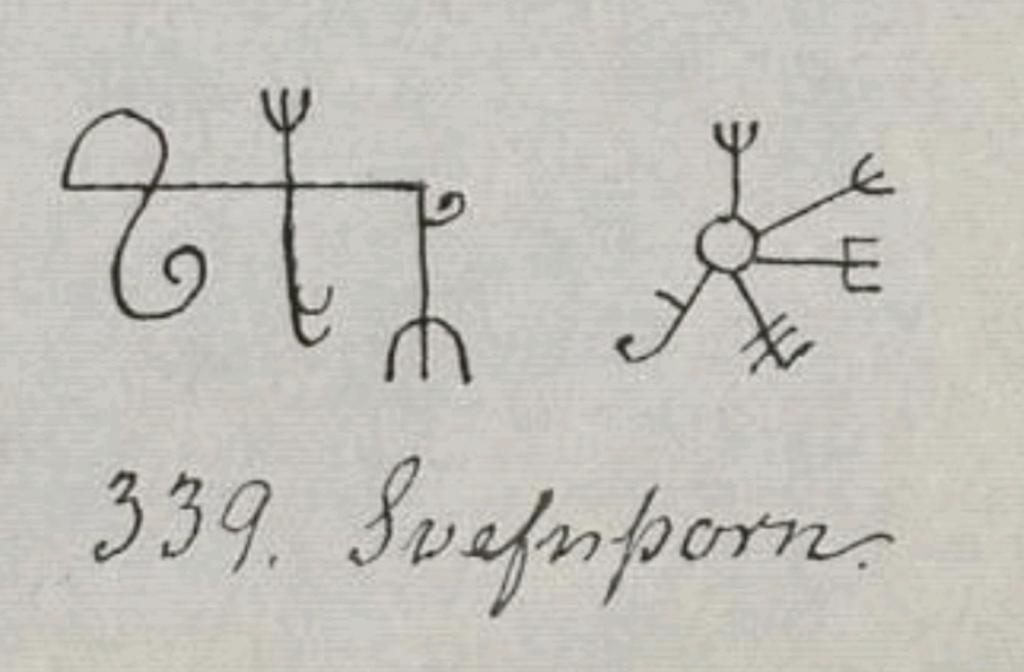 339. Svefnþorn.